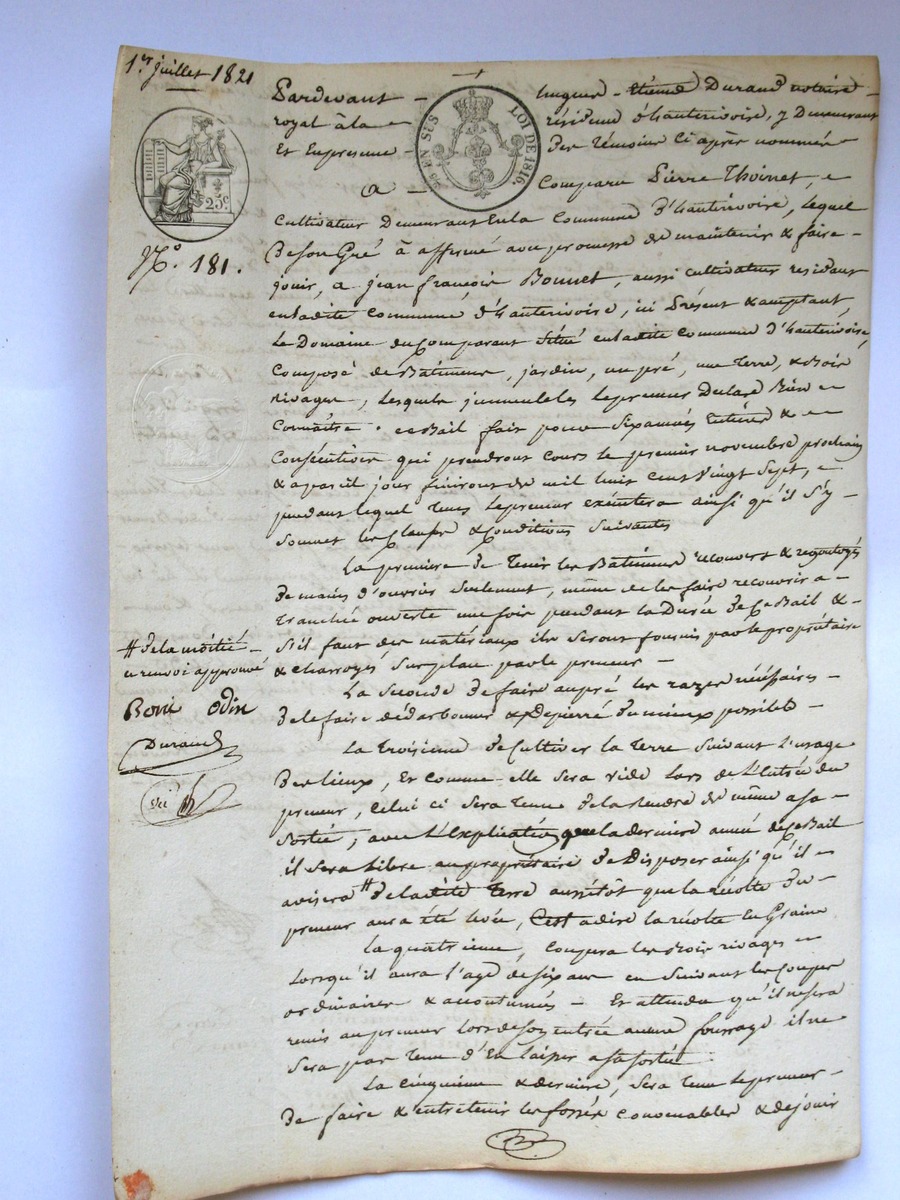 1er juillet 1821
Pardevant – hugues – Etienne Durand notaire –
royal à la – résidence d'hauterivoire, y Demeurant
Et En presence – Des témoins ci après nommés –
25 EN SUS
LOI DE 1816.
1 F
25c
a – Comparu Pierre Thoinet,
Cultivateur Demeurant En la Commune D'hauterivoire, lequel
De son Gré à affermé avec promesse de maintenir & faire –
N.º 181.
jouir, a jean françois Bonnet, aussi cultivateur residant
en ladite Commune d'hauterivoire, ici Présent & acceptant,
Le Domaine du Comparant Situé en ladite Commune d'hauterivoire,
Composé de Bâtimens, jardin, un pré, une Terre, & Bois
rivages, lesquels immeubles le preneur Declare Bien
Connaître. ce Bail fait pour Six années Entières &
Consécutives qui prendront Cours le premier novembre prochain
& a pareil jour finiront de mil huit Cent Vingt Sept,
pendant lequel Tems le preneur exécutera ainsi qu'il S'y
Soumet les Clauses & Conditions Suivantes
La premiere de Tenir les Bâtimens recouverts & regoutoyés
de mains d'ouvrier Seulement, même de les faire recouvrir a –
tranchée ouverte une fois pendant la Durée de Ce Bail & –
S'il faut des matériaux ils Seront fournis par le propriétaire
& charroyés Sur place par le preneur –
# de la moitié –
ce renvoi approuvé
Boni Odin
Durand
La Seconde de faire au pré les razes nécessaires –
de le faire dédarbonner & Depierré du mieux possible –
La troisieme de Cultiver la Terre Suivant L'usage
Des lieux, Et Comme elle sera vide Lors de L'entrée du
preneur, Celui ci Sera Tenu de la Rendre de même a sa
Sortie, avec L'Explication que la derniere année de Ce Bail
il Sera Libre au propriétaire de Disposer ainsi qu'il –
avisera # de ladite Terre aussitôt que la récolte du –
preneur aura été levée, C'est a dire la récolte En Grains
La quatrieme, Coupera les Bois rivages –
Lorsqu'il aura l'age de six ans en Suivant les Coupes
ordinaires & accoutumées – Et attendu qu'il ne sera
remis au preneur Lors de son entrée aucun fourrage il ne
Sera pas Tenu d'En laisser a sa Sortie.
La Cinquieme & derniere, Sera Tenu le preneur –
De faire & entretenir les fossés Convenables & de jouir